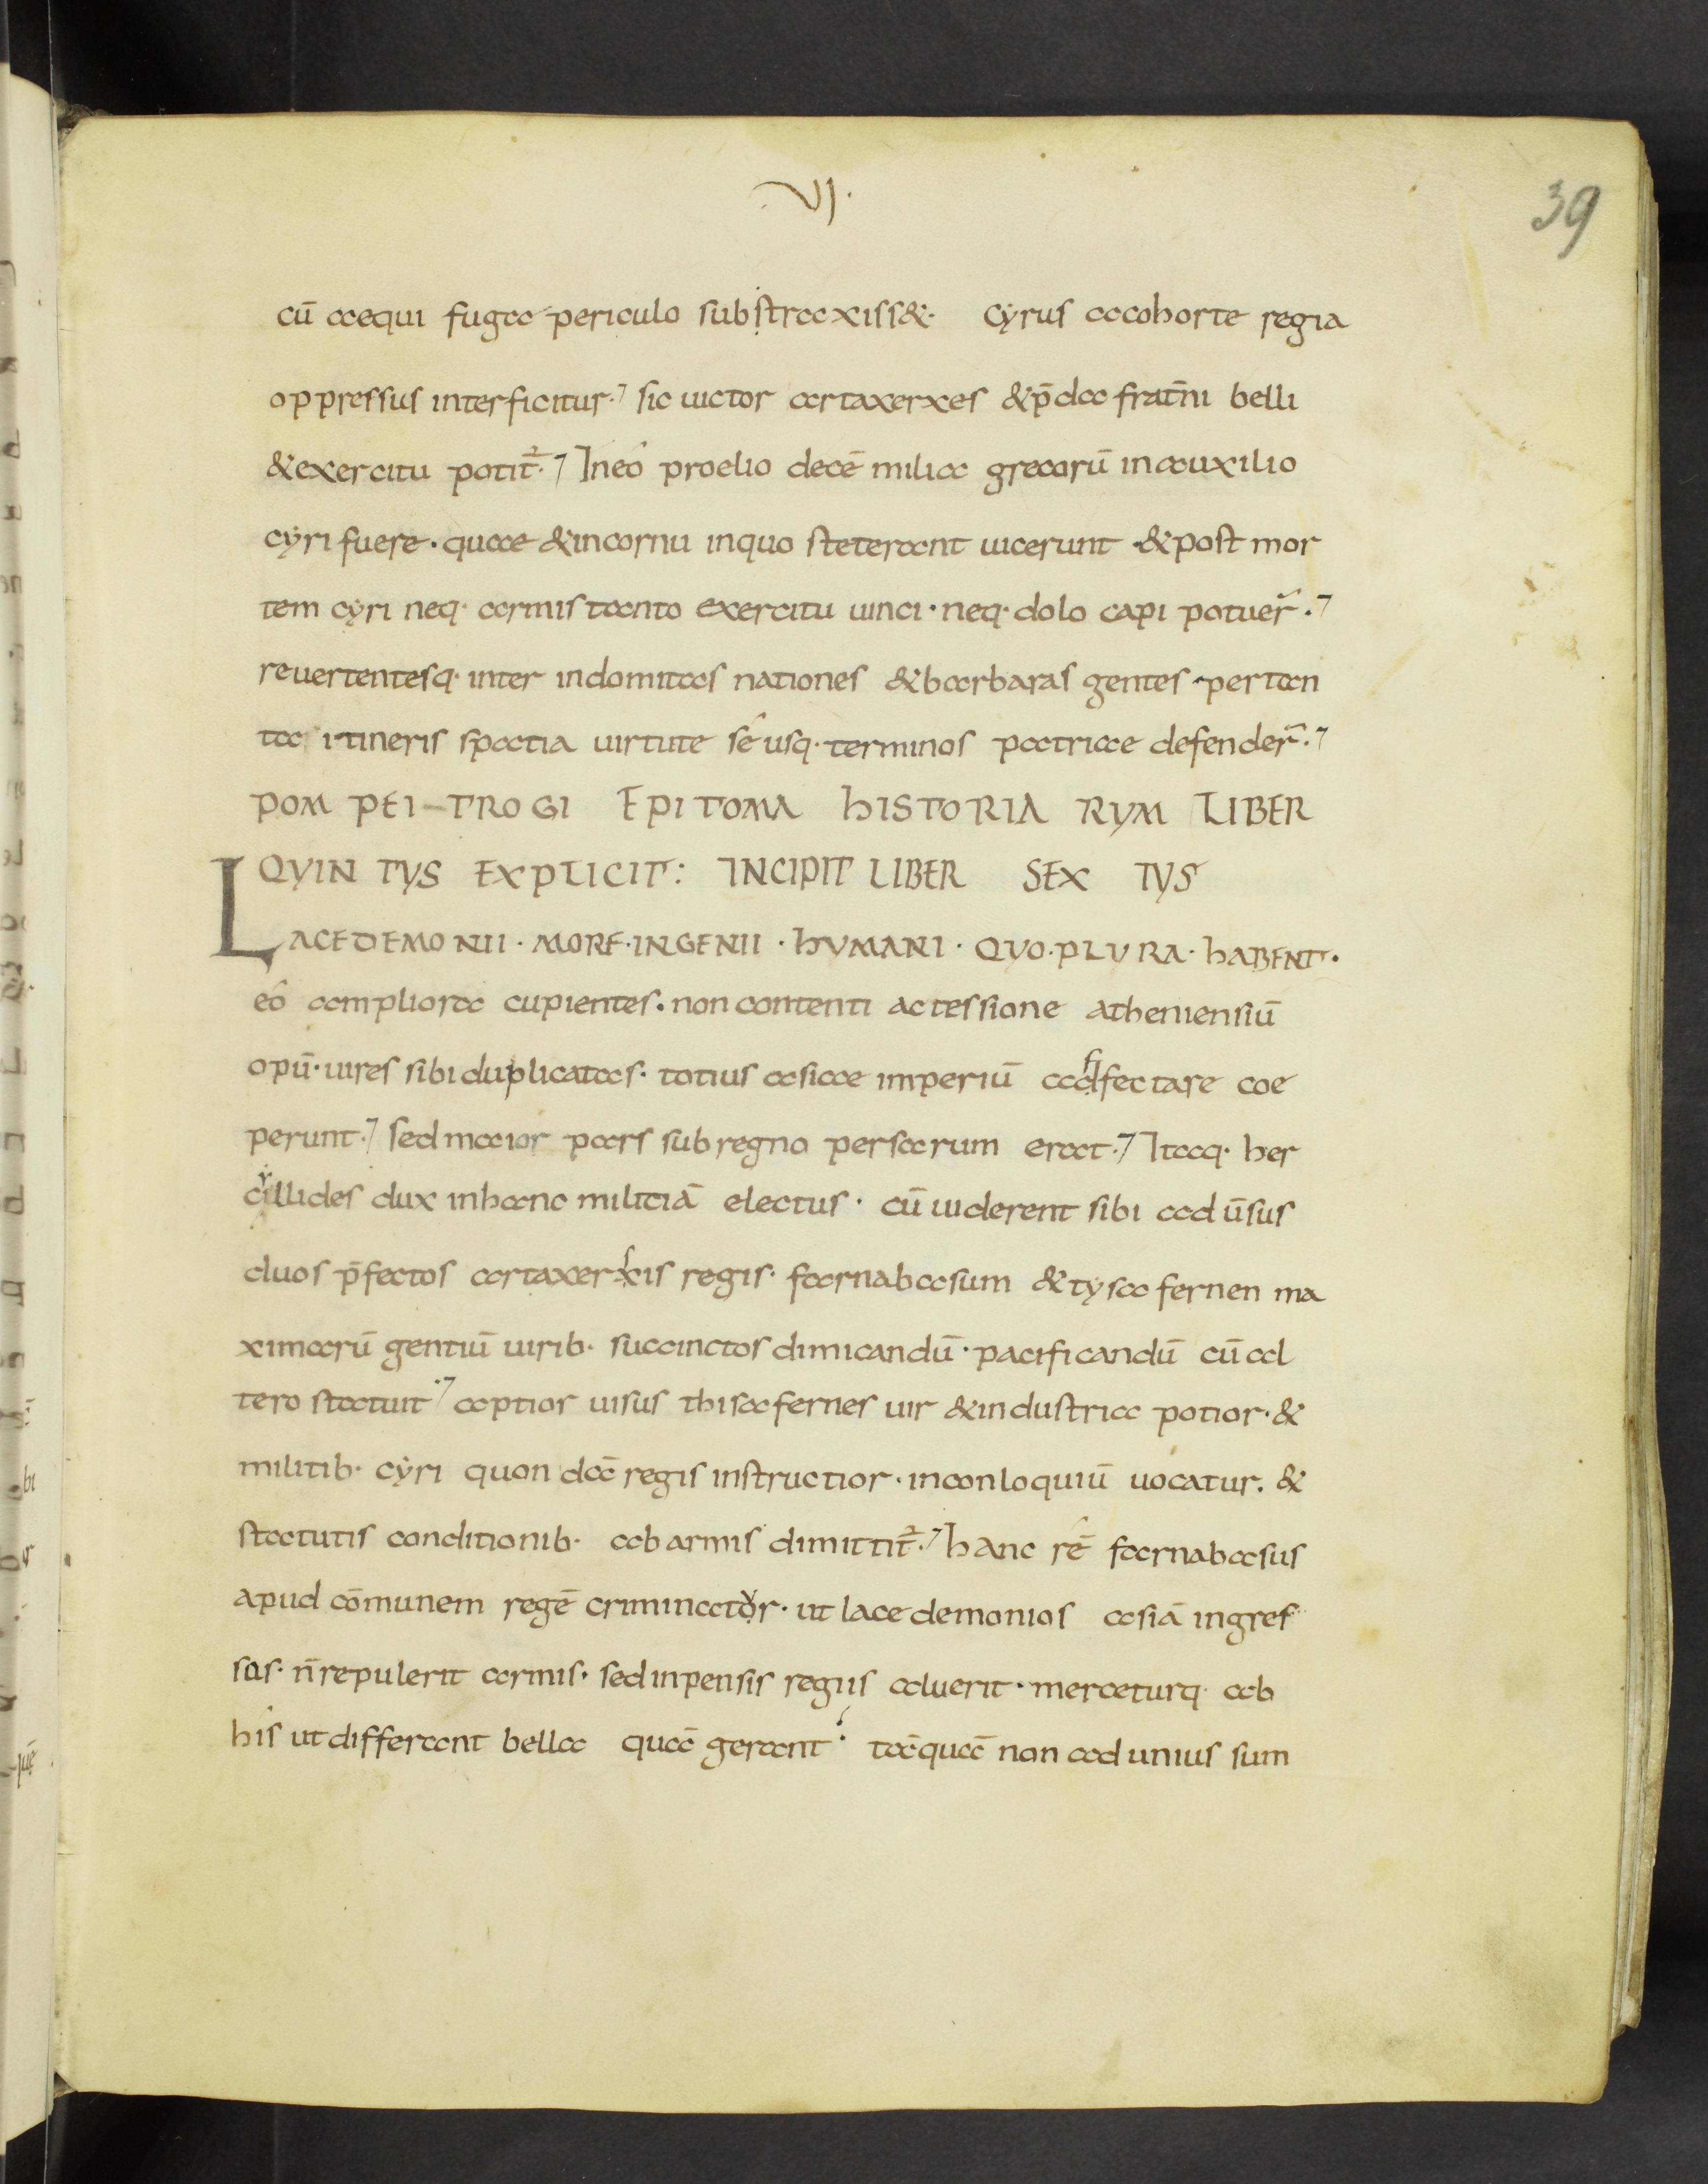 VI.
39
cū aequi fuga periculo substraxiss&. Cyrus acohorte regia
oppressus interficitur. sic uictor artaxerxes &p̄da frat̄ni belli
&exercitu potit̄. Ineo proelio decē milia grecorū inauxilio
cyri fuere. quae &incornu inquo steterant uicerunt. &post mor
tem cyri neq. armis tanto exercitu uinci. neq. dolo capi potuer̄.
reuertentesq. inter indomitas nationes &barbaras gentes pertan
ta itineris spatia uirtute sé usq. terminos patriae defender̄.
POMPEI TROGI EPITOMA HISTORIARVM LIBER
QVINTVS EXPLICIT: INCIPIT LIBER SEXTVS
LACEDEMONII. MORE. INGENII. HVMANI. QVO. PLVRA. HABENT.
eo ampliora cupientes. non contenti actessione atheniensiū
opū. uires sibi duplicatas. totius asiae imperiū adfectare coe
perunt. sed maior pars sub regno persarum erat. Itaq. her
cillides dux inhanc militiā electus. cū uiderent sibi adūsus
duos p̄fectos artaxerxis regis. farnabasum &tysafernen ma
ximarū gentiū uirib. succinctos dimicandū. pacificandū cū al
tero statuit aptior uisus thisafernes uir &industria potior. &
militib. cyri quondā regis instructior. inconloquiū uocatur. &
statutis conditionib. ab armis dimittit̄. hanc rē farnabasus
apud cōmunem regē criminator. ut lacedemonios asiā ingres
sus. n̄ repulerit armis. sed inpensis regiis aluerit. merceturq. ab
his ut differant bella quā gerant. tāquā non ad unius sum